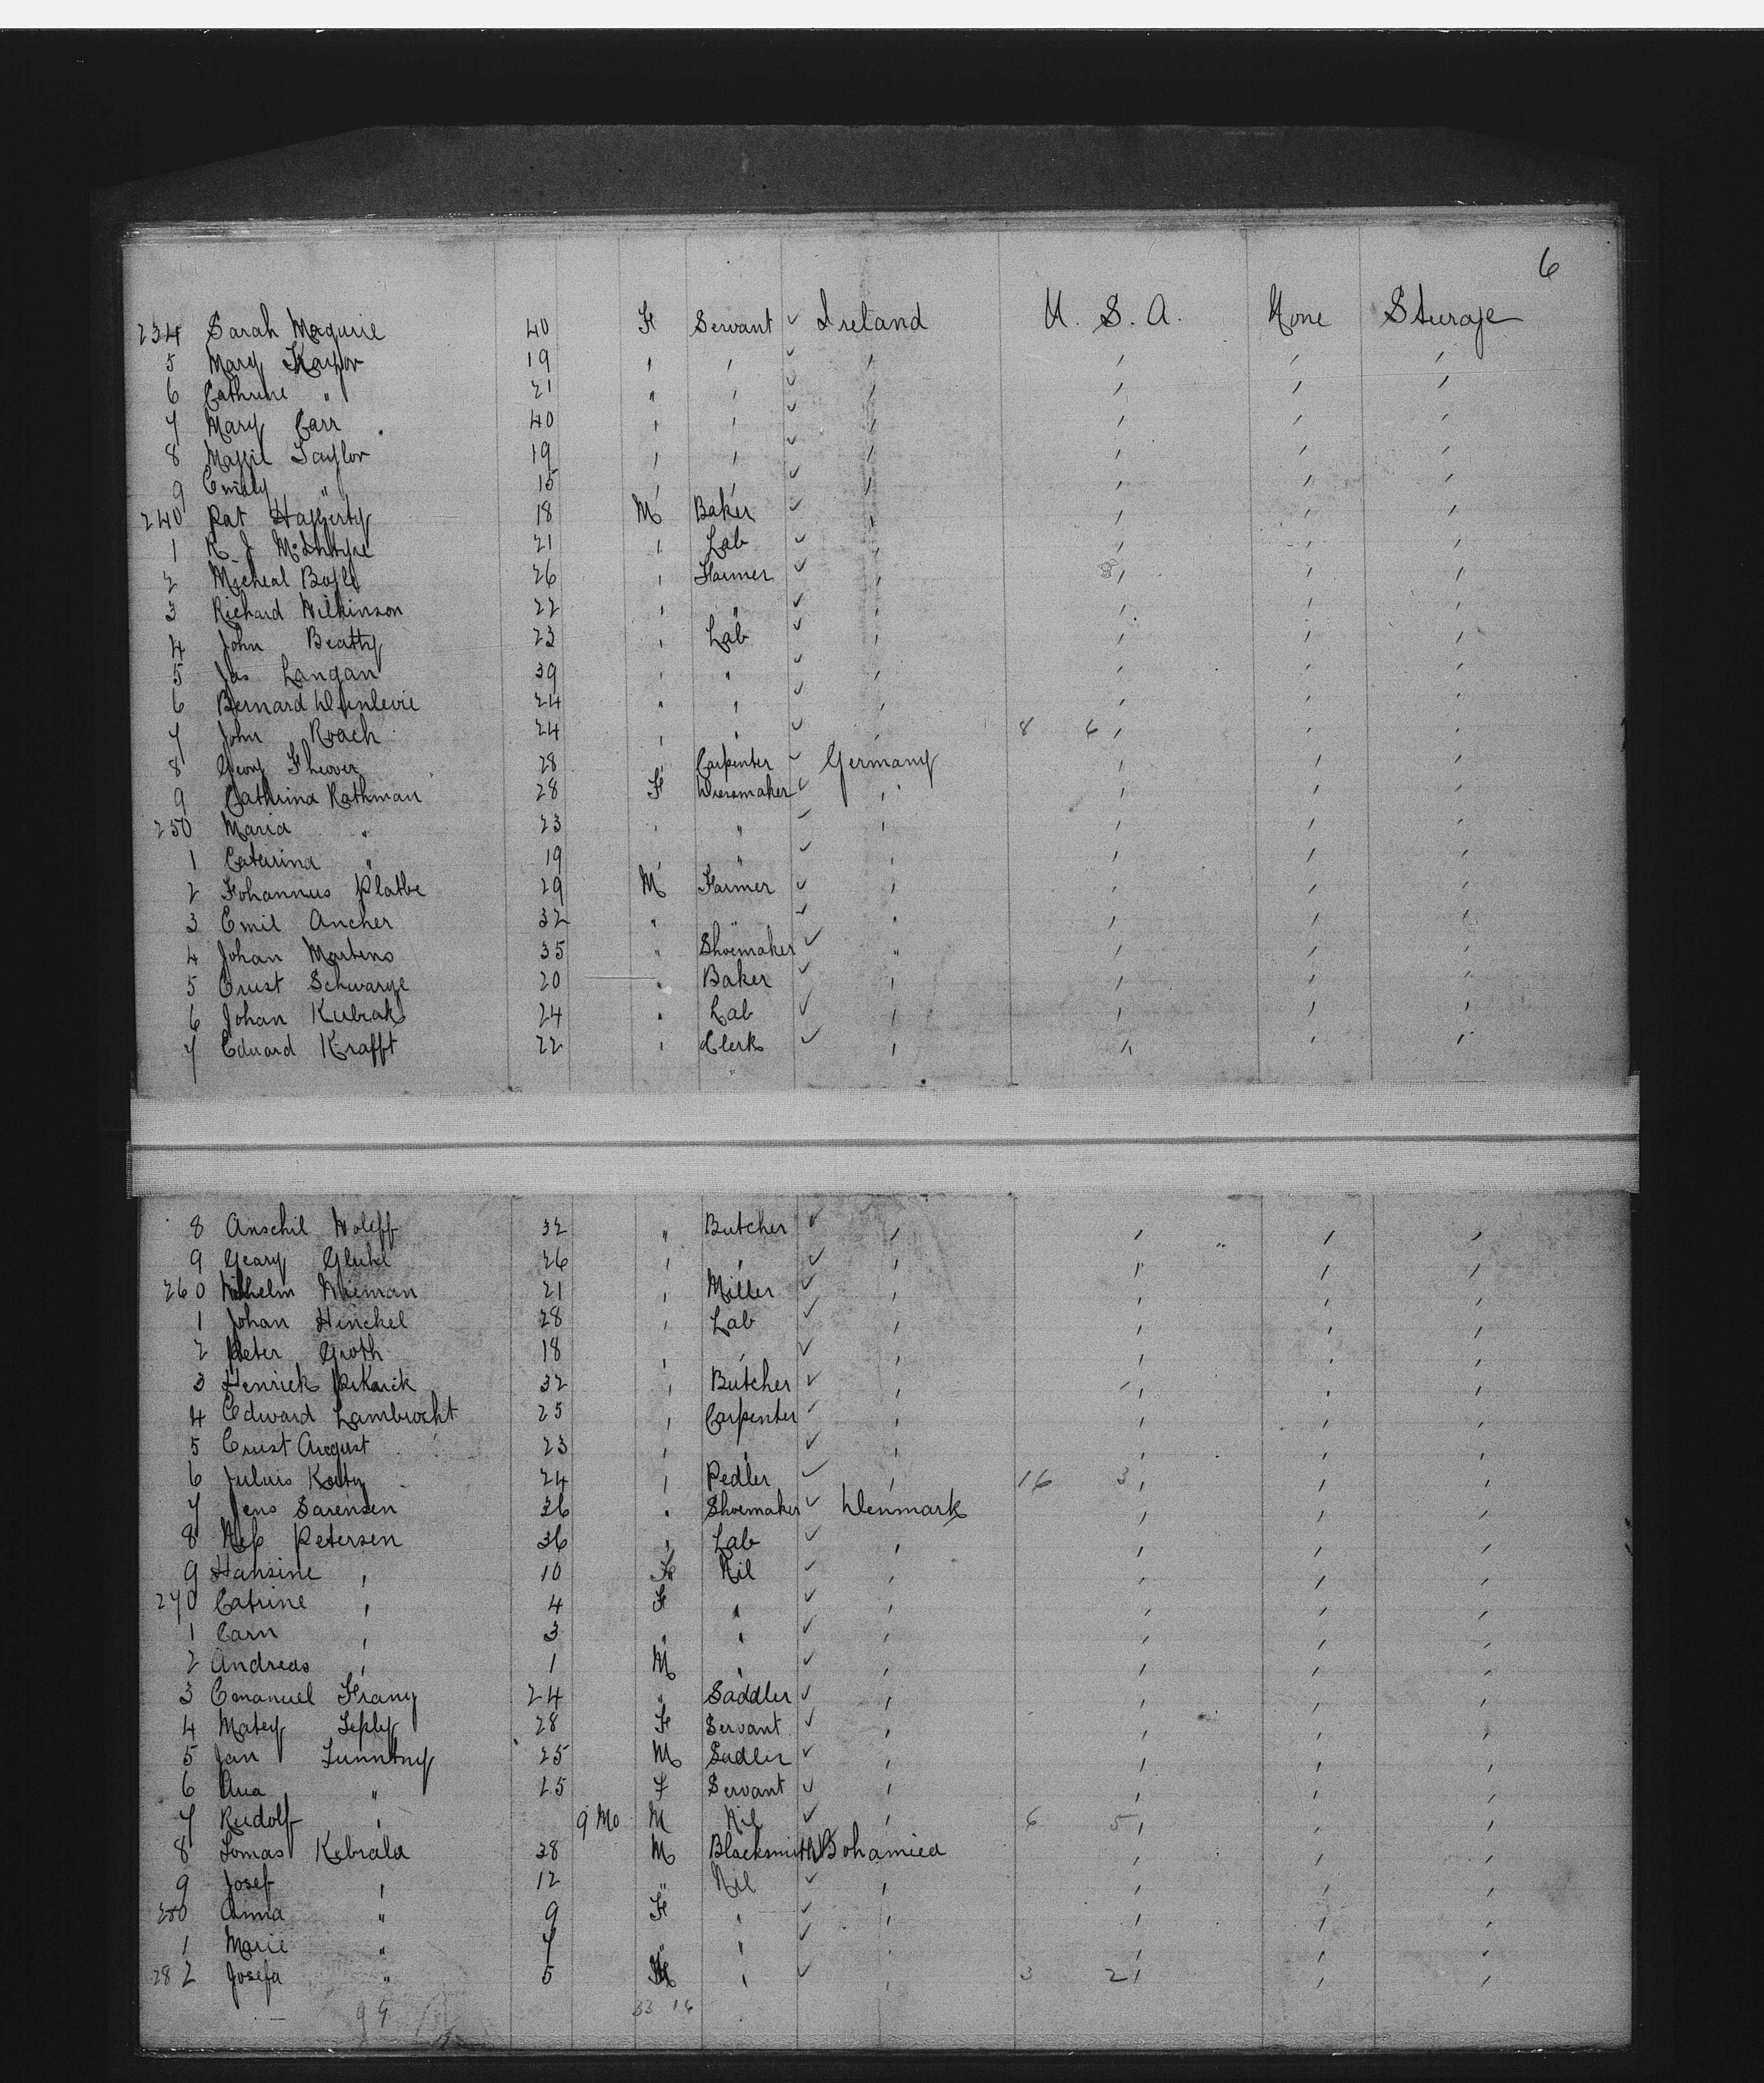 6
234 Sarah Maguire 40 F Servant ✓ Ireland U. S. A. None Steerage
5 Mary Kaylor 19 " " ✓ " " " "
6 Cathrine " 21 " " ✓ " " " "
7 Mary Carr 40 " " ✓ " " " "
8 Maggie Taylor 19 " " ✓ " " " "
9 Emily " 15 " " ✓ " " " "
240 Pat Haggerty 18 M Baker ✓ " " " "
1 R J McIntyre 21 " Lab ✓ " " " "
2 Micheal Boyle 26 " Farmer ✓ " " " "
3 Richard Wilkinson 22 " " ✓ " " " "
4 John Beatty 23 " Lab ✓ " " " "
5 Jas Langan 39 " " ✓ " " " "
6 Bernard Dunlevie 24 " " ✓ " " " "
7 John Roach 24 " " ✓ " 8 6 " " "
8 Georg 28 " Carpenter ✓ Germany " " "
9 Cathrina Rathman 28 F Dressmaker ✓ " " " "
250 Maria " 23 " " ✓ " " " "
1 Catarina " 19 " " ✓ " " " "
2 Johannus Platbe 29 M Farmer ✓ " " " "
3 Emil Ancher 32 " " ✓ " " " "
4 Johan Martens 35 " Shoemaker ✓ " " " "
5 Ernst Schwarze 20 " Baker ✓ " " " "
6 Johan Kubrak 24 " Lab ✓ " " " "
7 Edward Krafft 22 " Clerk ✓ " " " "
8 Anschil Wolff 32 " Butcher ✓ " " " "
9 Georg Gluhl 26 " " ✓ " " " "
260 Wilhelm Nieman 21 " Miller ✓ " " " "
1 Johan Hinckel 28 " Lab ✓ " " " "
2 Peter Groth 18 " " ✓ " " " "
3 Henrick 32 " Butcher ✓ " " " "
4 Edward Lambrocht 25 " Carpenter ✓ " " " "
5 Ernst August 23 " " ✓ " " " "
6 Juluis Katz 24 " Pedler ✓ " 16 3 " " "
7 Jens Sarensen 36 " Shoemaker ✓ Denmark " " "
8 Petersen 36 " Lab ✓ " " " "
9 Hansine " 10 F Nil ✓ " " " "
270 Catrine " 4 F " ✓ " " " "
1 Carn " 3 " " ✓ " " " "
2 Andreas " 1 M " ✓ " " " "
3 Emanuel Franz 24 " Saddler ✓ " " " "
4 Matey Teply 28 F Servant ✓ " " " "
5 Jan 25 M Sadler ✓ " " " "
6 Ana " 25 F Servant ✓ " " " "
7 Rudolf " 9 Mo M Nil ✓ " 6 5 " " "
8 Tomas Kebrala 38 M Blacksmith ✓ Bohamiea " " "
9 Josef " 12 " Nil ✓ " " " "
280 Anna " 9 F " ✓ " " " "
1 Marie " 7 " " ✓ " " " "
282 Josefa " 5 " ✓ " 3 2 " " "
33 16